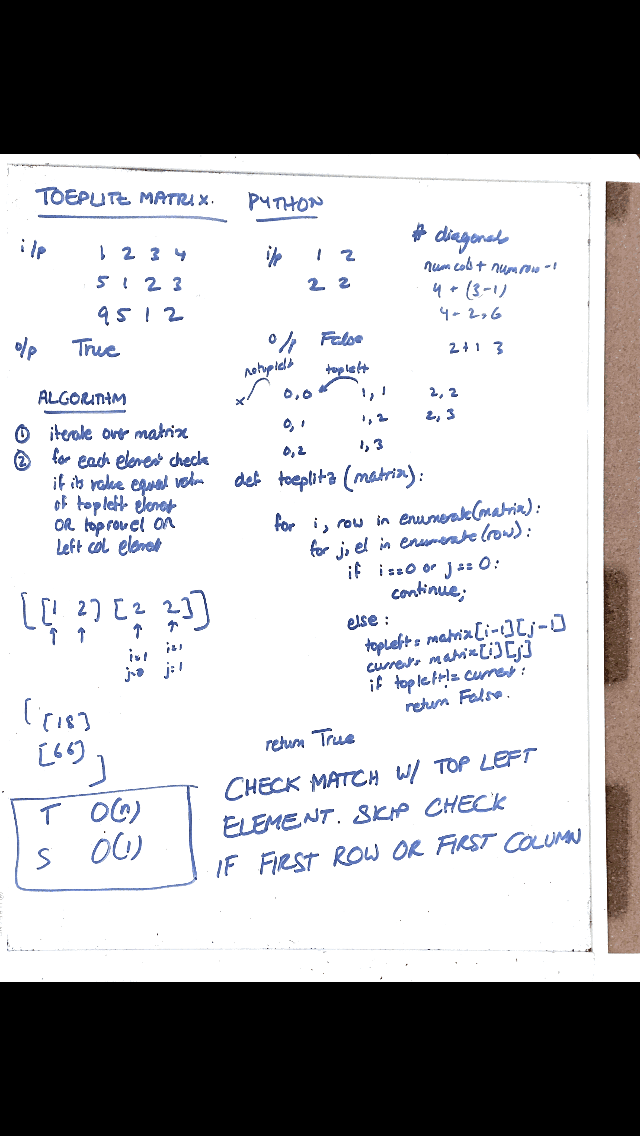 TOEPLITE MATRIX. PYTHON
i/p 1 2 3 4
5 1 2 3
9 5 1 2
o/p True
i/p 1 2
2 2
o/p False
# diagonals
num cols + num rows - 1
4 + (3-1)
4 - 2, 6
2+1 3
no topleft topleft
x 0,0 1,1 2,2
0,1 1,2 2,3
0,2 1,3
ALGORITHM
① iterate over matrix
② for each element check
if its value equal value
of top left element
OR top row el OR
Left col element
def toeplitz (matrix):
for i, row in enumerate(matrix):
for j, el in enumerate (row):
if i==0 or j==0:
continue;
else:
topLeft = matrix[i-1][j-1]
current = matrix[i][j]
if topleft != current:
return False.
return True
[[1 2) [2 2]]
i=1 i=1
j=0 j=1
[
[18]
[66)
]
T O(n)
S O(1)
CHECK MATCH W/ TOP LEFT
ELEMENT. SKIP CHECK
IF FIRST ROW OR FIRST COLUMN